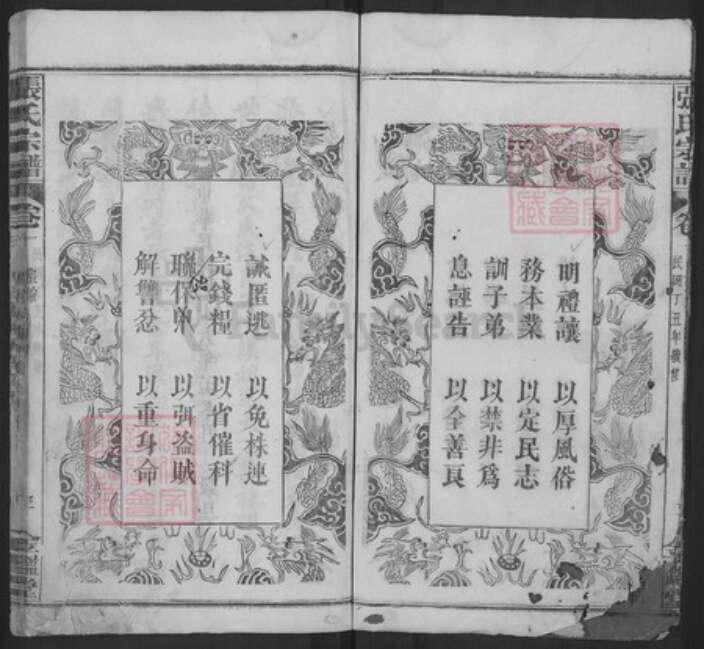 張氏宗譜
卷
民國丁丑年續修
明禮讓 以厚風俗
務本業 以定民志
訓子弟 以禁非為
息誣告 以全善良
誡匿逃 以免株連
完錢糧 以省催科
聯保甲 以弭盜賊
解讐忿 以重身命
張氏宗譜
卷一